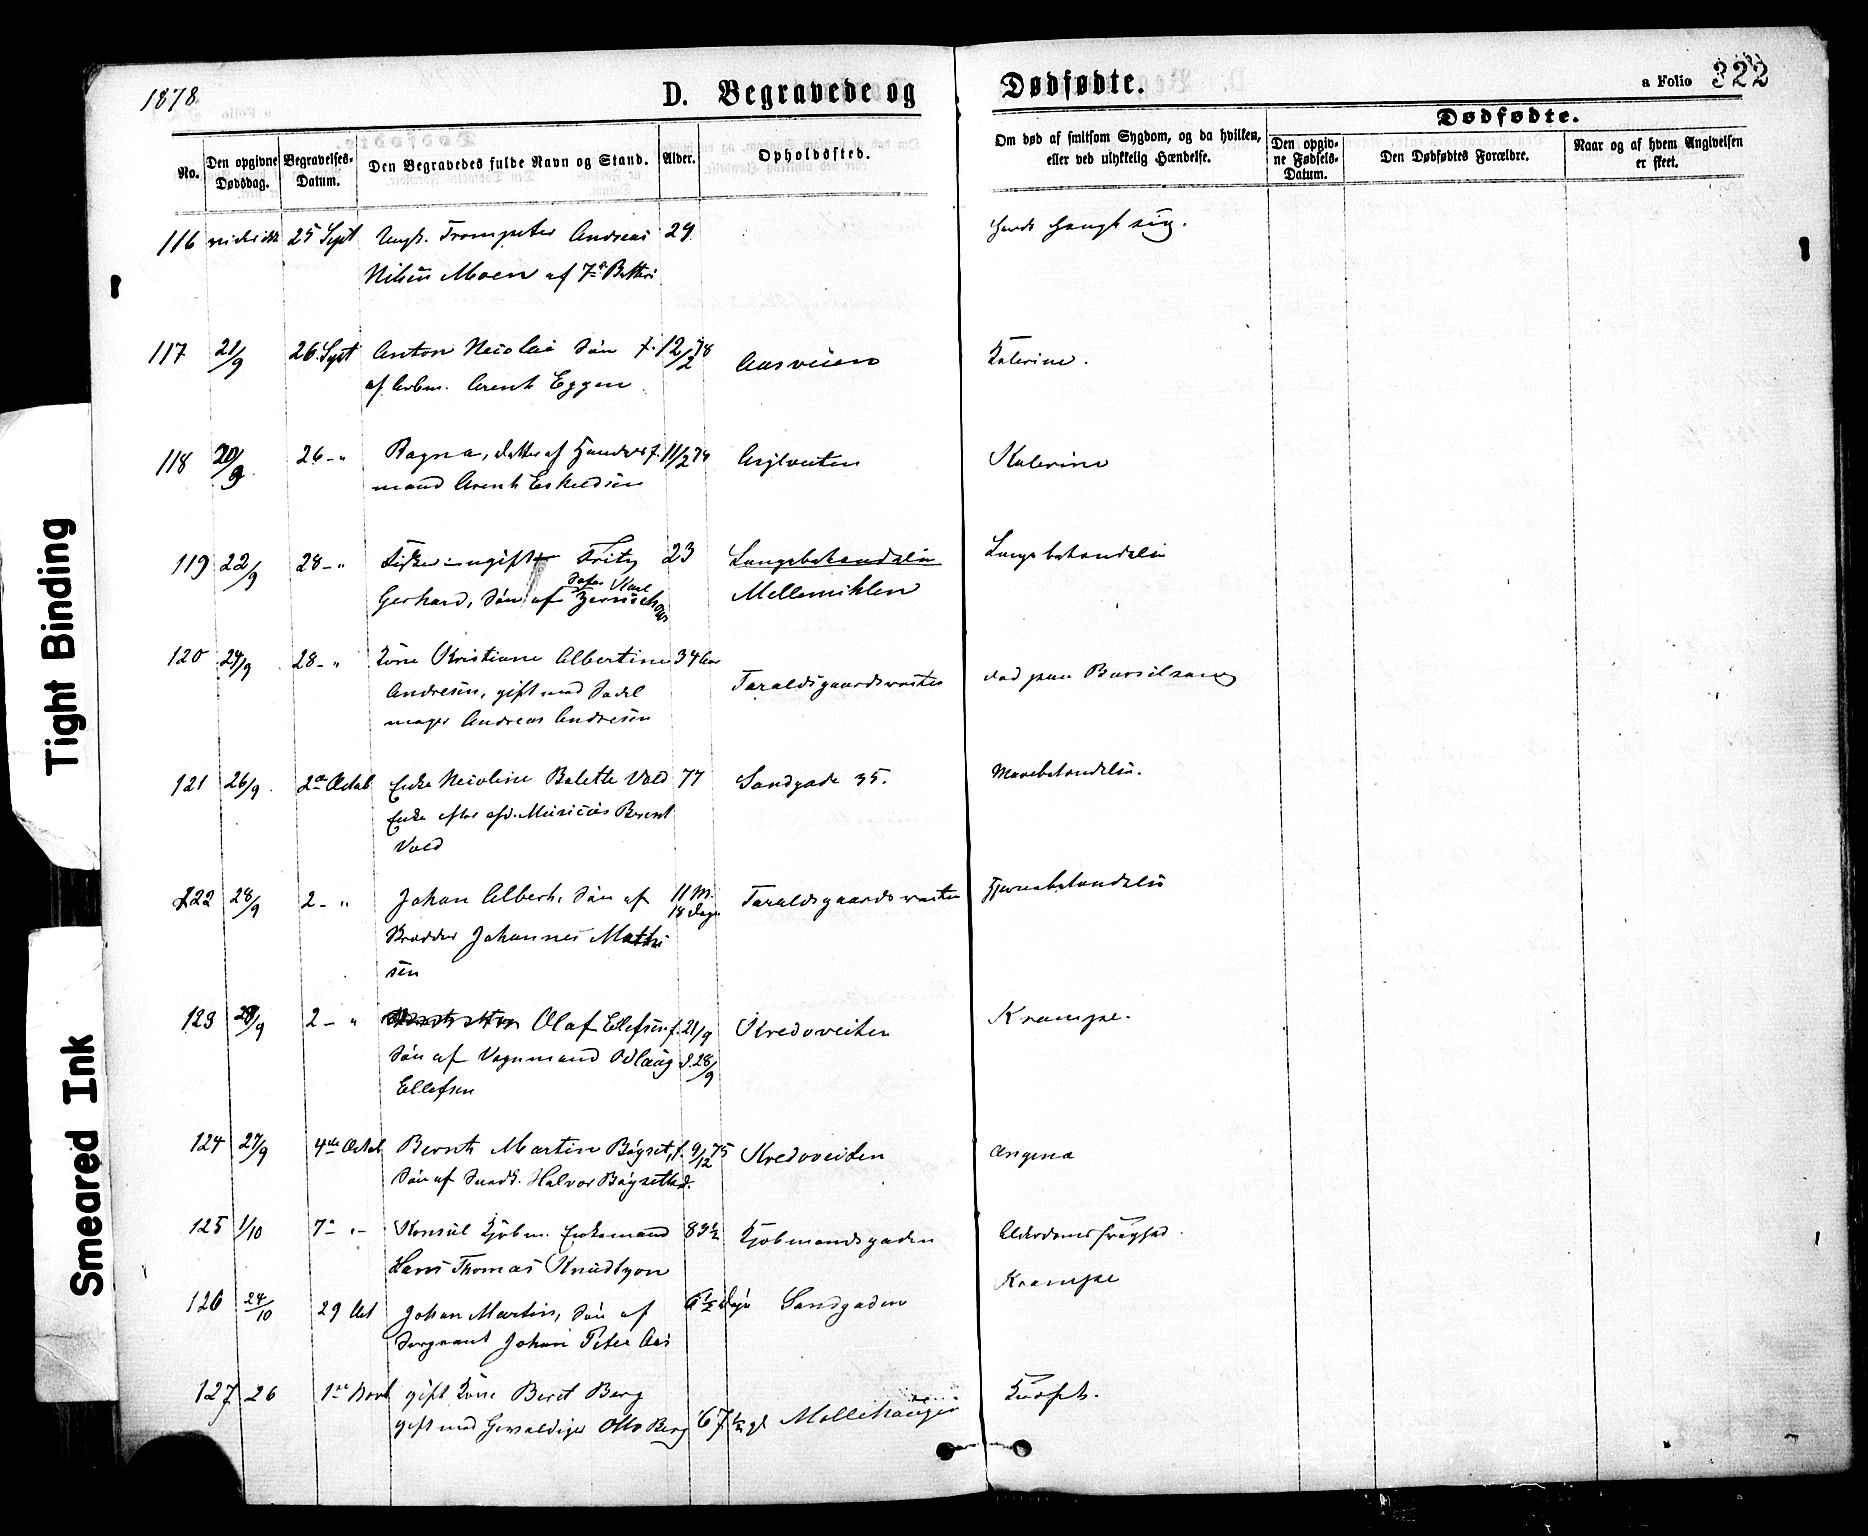 1878.
D. Begravede og Dødfødte.
a Folio 322
No.
Den opgivne Dødsdag.
Begravelses-Datum.
Den Begravedes fulde Navn og Stand.
Alder.
Opholdssted.
Om død af smitsom Sygdom, og da hvilken, eller ved ulykkelig Hændelse.
Dødfødte.
Den opgivne Fødsels-Datum.
Den Dødfødtes Forældre.
Naar og af hvem Angivelsen er skeet.
116 25 Sept Ungk. Trompeter Andreas 29
Nilsen Moen af 7de Batteri
117 21/9 26 Sept Anton Nicolai Søn f. 12/2 78 Aasveien
af Arbm. Arent Eggen
118 20/9 26 - " Ragna, Datter af f. 11/2 74
mand Arent Eskildsen
119 22/9 28 - " ugift Fritz 23 Lungebetændelse
Gerhard, Søn af Mellemihlen Lungebetændelse
120 24/9 28 - " Kone Kristiane Albertine 34 Aar
Andresen, gift med Sadel Taraldsgaardsveiten død paa Barselseng
mager Andreas Andresen
121 26/9 2den Octob Enke Nicoline Balette Vold 77 Sandgade 35. Mavebetændelse.
Enke efter afd. Musicus Berent
Vold
122 28/9 2 - " Johan Albert, Søn af 11 M. 18 Dage Taraldsgaardsveiten Hjernebetændelse
Skrædder Johannes Mathi
sen
123 28/9 2 - " Olaf Ellefsen f. 21/9 Kredoveiten Krampe.
Søn af Vognmand Odlaug d. 28/9
Ellefsen
124 27/9 4de Octob Bernt Martin Bøgset, f. 9/12 75 Kredoveiten Angina
Søn af Snedk. Halvor Bøgset
125 1/10 7de " - Konsul Kjøbm. Enkemand 83 1/2 Kjøbmandsgaden Alderdomssvaghed.
Hans Thomas Knudtzon
126 24/10 29 Oct Johan Martin, Søn af 6 1/2 Dage Sandgaden Krampe
Sergeant Johan Peter Aas
127 26 1ste Novb gift Kone Beret Berg
gift med Gevaldiger Otto Berg 67 Møllehaugen
Tight Binding
Smeared Ink